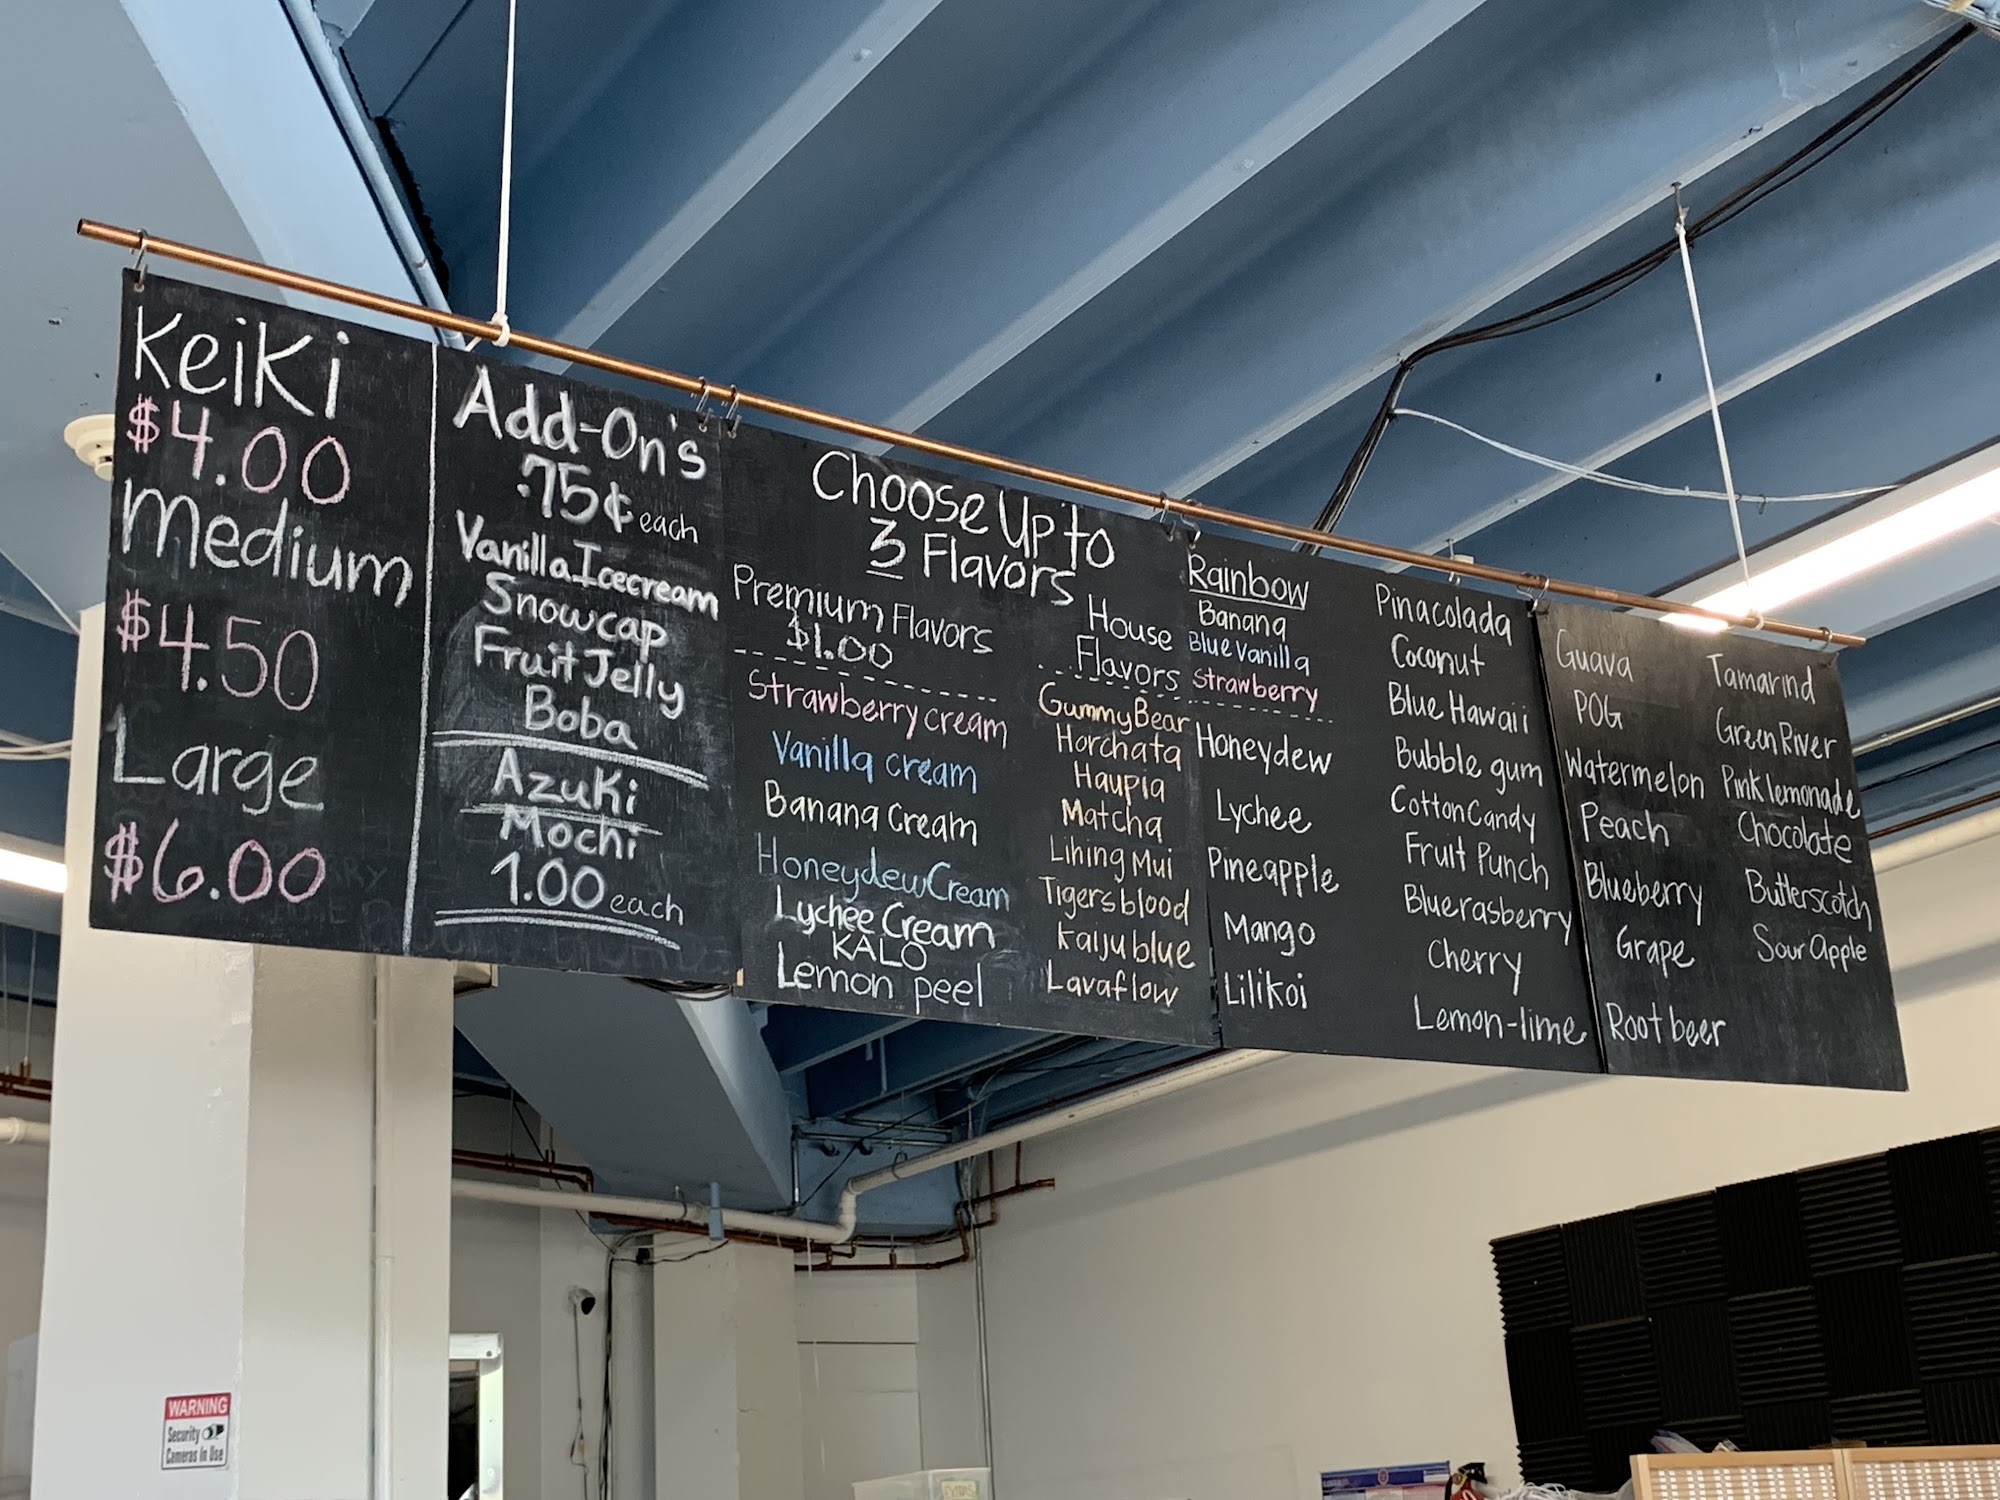 Keiki
$4.00
Medium
$4.50
Large
$6.00
Add-On's
.75¢ each
Vanilla Icecream
Snowcap
Fruit Jelly
Boba
Azuki
Mochi
1.00 each
Choose Up to
3 Flavors
Premium Flavors
$1.00
Strawberry cream
Vanilla cream
Banana Cream
Honeydew Cream
Lychee Cream
KALO
Lemon peel
House
Flavors
Gummy Bear
Horchata
Haupia
Matcha
Lihing Mui
Tigersblood
Kaiju blue
Lavaflow
Rainbow
Banana
Blue Vanilla
Strawberry
Honeydew
Lychee
Pineapple
Mango
Lilikoi
Pinacolada
Coconut
Blue Hawaii
Bubble gum
Cotton Candy
Fruit Punch
Bluerasberry
Cherry
Lemon-lime
Guava
POG
Watermelon
Peach
Blueberry
Grape
Root beer
Tamarind
Green River
Pink lemonade
Chocolate
Butterscotch
Sour Apple
WARNING
Security
Cameras In Use